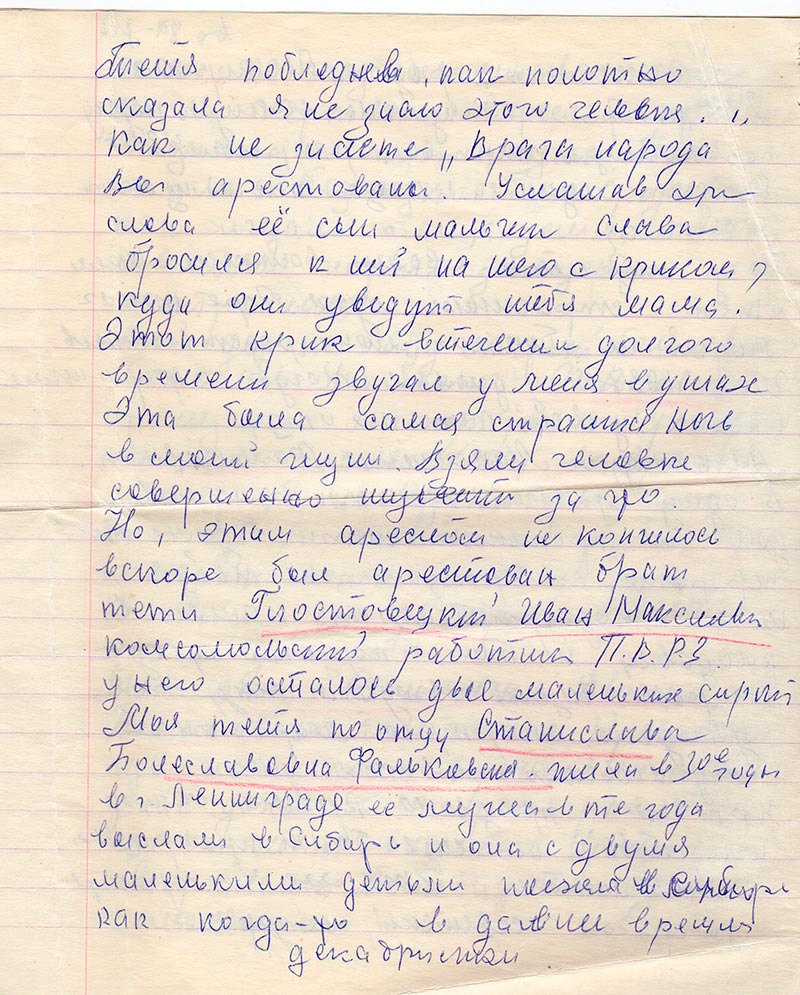 Тетя побледнела, как полотно
сказала я не знаю этого человека. „
Как не знаете „Врага народа
Вы арестованы. Услашав эти
слова её сын мальчик Слава
бросился к ней на шею с криком?
куда они уведут тебя мама.
Этот крик втечении долгого
времени звучал у меня в ушах
Эта была самая страшна ночь
в моей жизни. Взяли человека
совершенно за что.
Но, этим арестом не кончилось
вскоре был арестован брат
тети Глостовецкий Иван Максимович
комсомольский работник П.В.Р.З.
у него осталось двое маленьких сирот
Моя тетя по отцу Станислава
Болеславовна Фальковская. жила в 30е годы
в г. Ленинграде её мужа в те года
выслали в Сибирь и она с двумя
маленькими детьми поехала в Сибирь
как когда-то в давние времена
декабристки